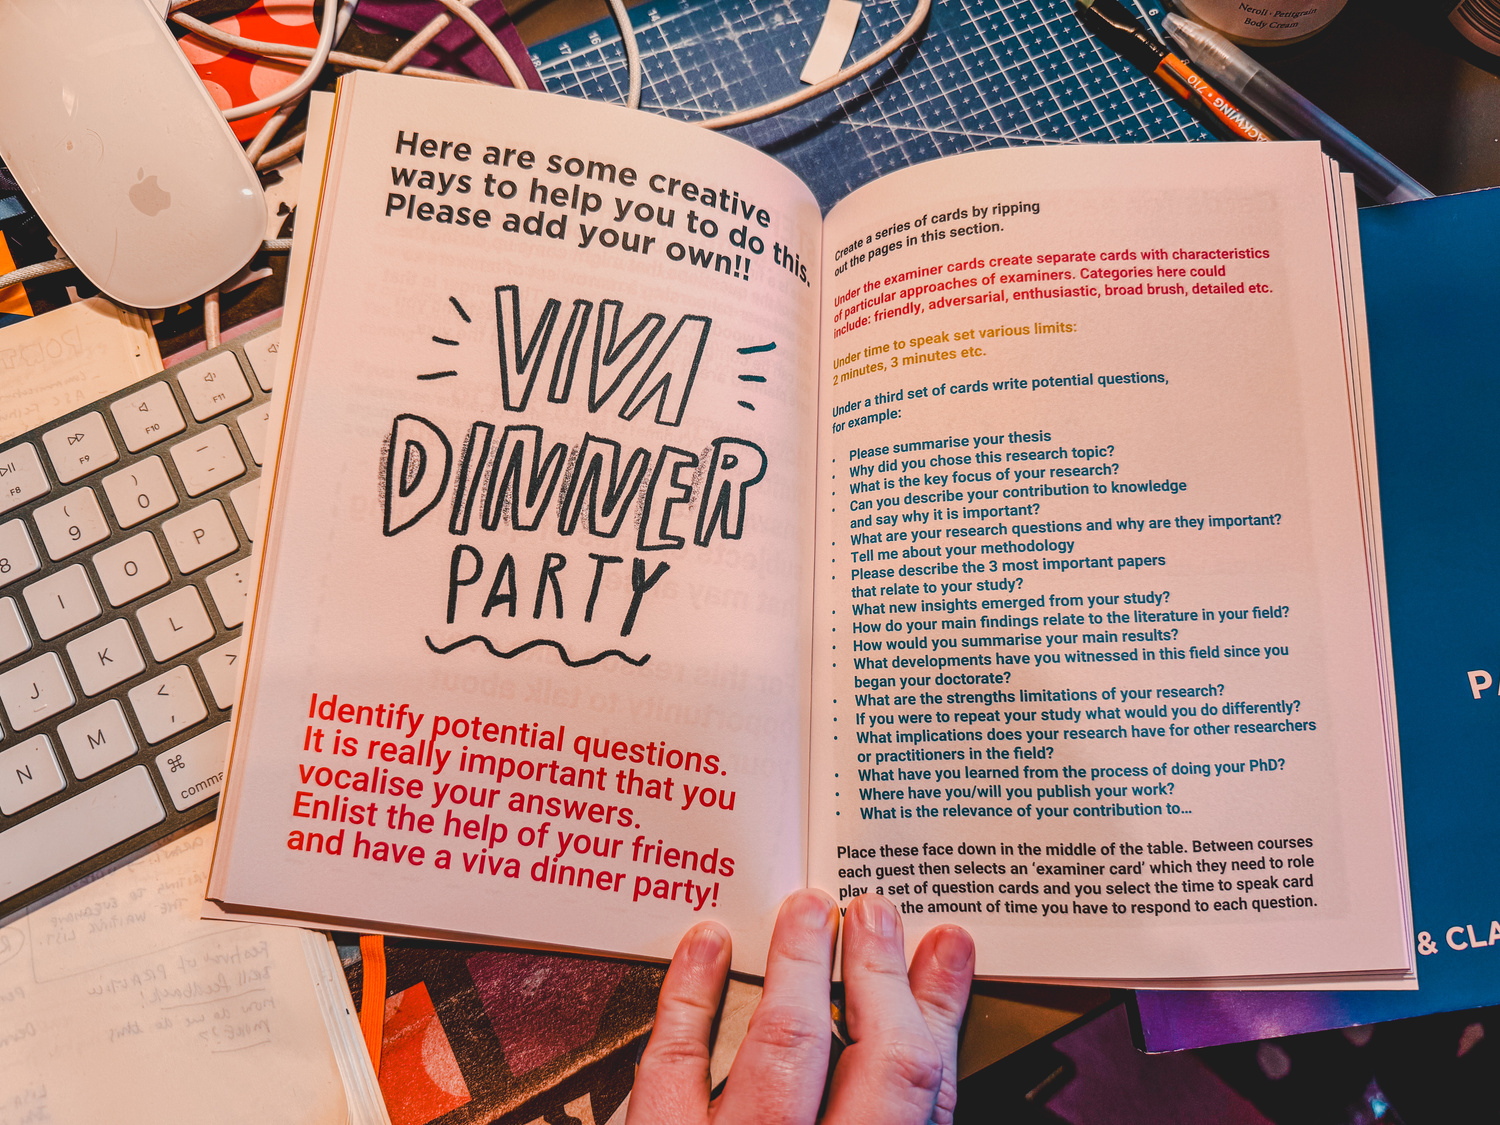 Here are some creative
ways to help you to do this.
Please add your own!!
VIVA
DINNER
PARTY
Identify potential questions.
It is really important that you
vocalise your answers.
Enlist the help of your friends
and have a viva dinner party!
Create a series of cards by ripping
out the pages in this section.
Under the examiner cards create separate cards with characteristics
of particular approaches of examiners. Categories here could
include: friendly, adversarial, enthusiastic, broad brush, detailed etc.
Under time to speak set various limits:
2 minutes, 3 minutes etc.
Under a third set of cards write potential questions,
for example:
Please summarise your thesis
Why did you chose this research topic?
What is the key focus of your research?
Can you describe your contribution to knowledge
and say why it is important?
What are your research questions and why are they important?
Tell me about your methodology
Please describe the 3 most important papers
that relate to your study?
What new insights emerged from your study?
How do your main findings relate to the literature in your field?
How would you summarise your main results?
What developments have you witnessed in this field since you
began your doctorate?
What are the strengths limitations of your research?
If you were to repeat your study what would you do differently?
What implications does your research have for other researchers
or practitioners in the field?
What have you learned from the process of doing your PhD?
Where have you/will you publish your work?
What is the relevance of your contribution to...
Place these face down in the middle of the table. Between courses
each guest then selects an ‘examiner card’ which they need to role
play, a set of question cards and you select the time to speak card
the amount of time you have to respond to each question.
Neroli · Petitgrain
Body Cream
710
F8
F9
F10
F11
8
( 9
) 0
I
O
P
J
K
L
N
M
< ,
>
⌘
comma
& CLA